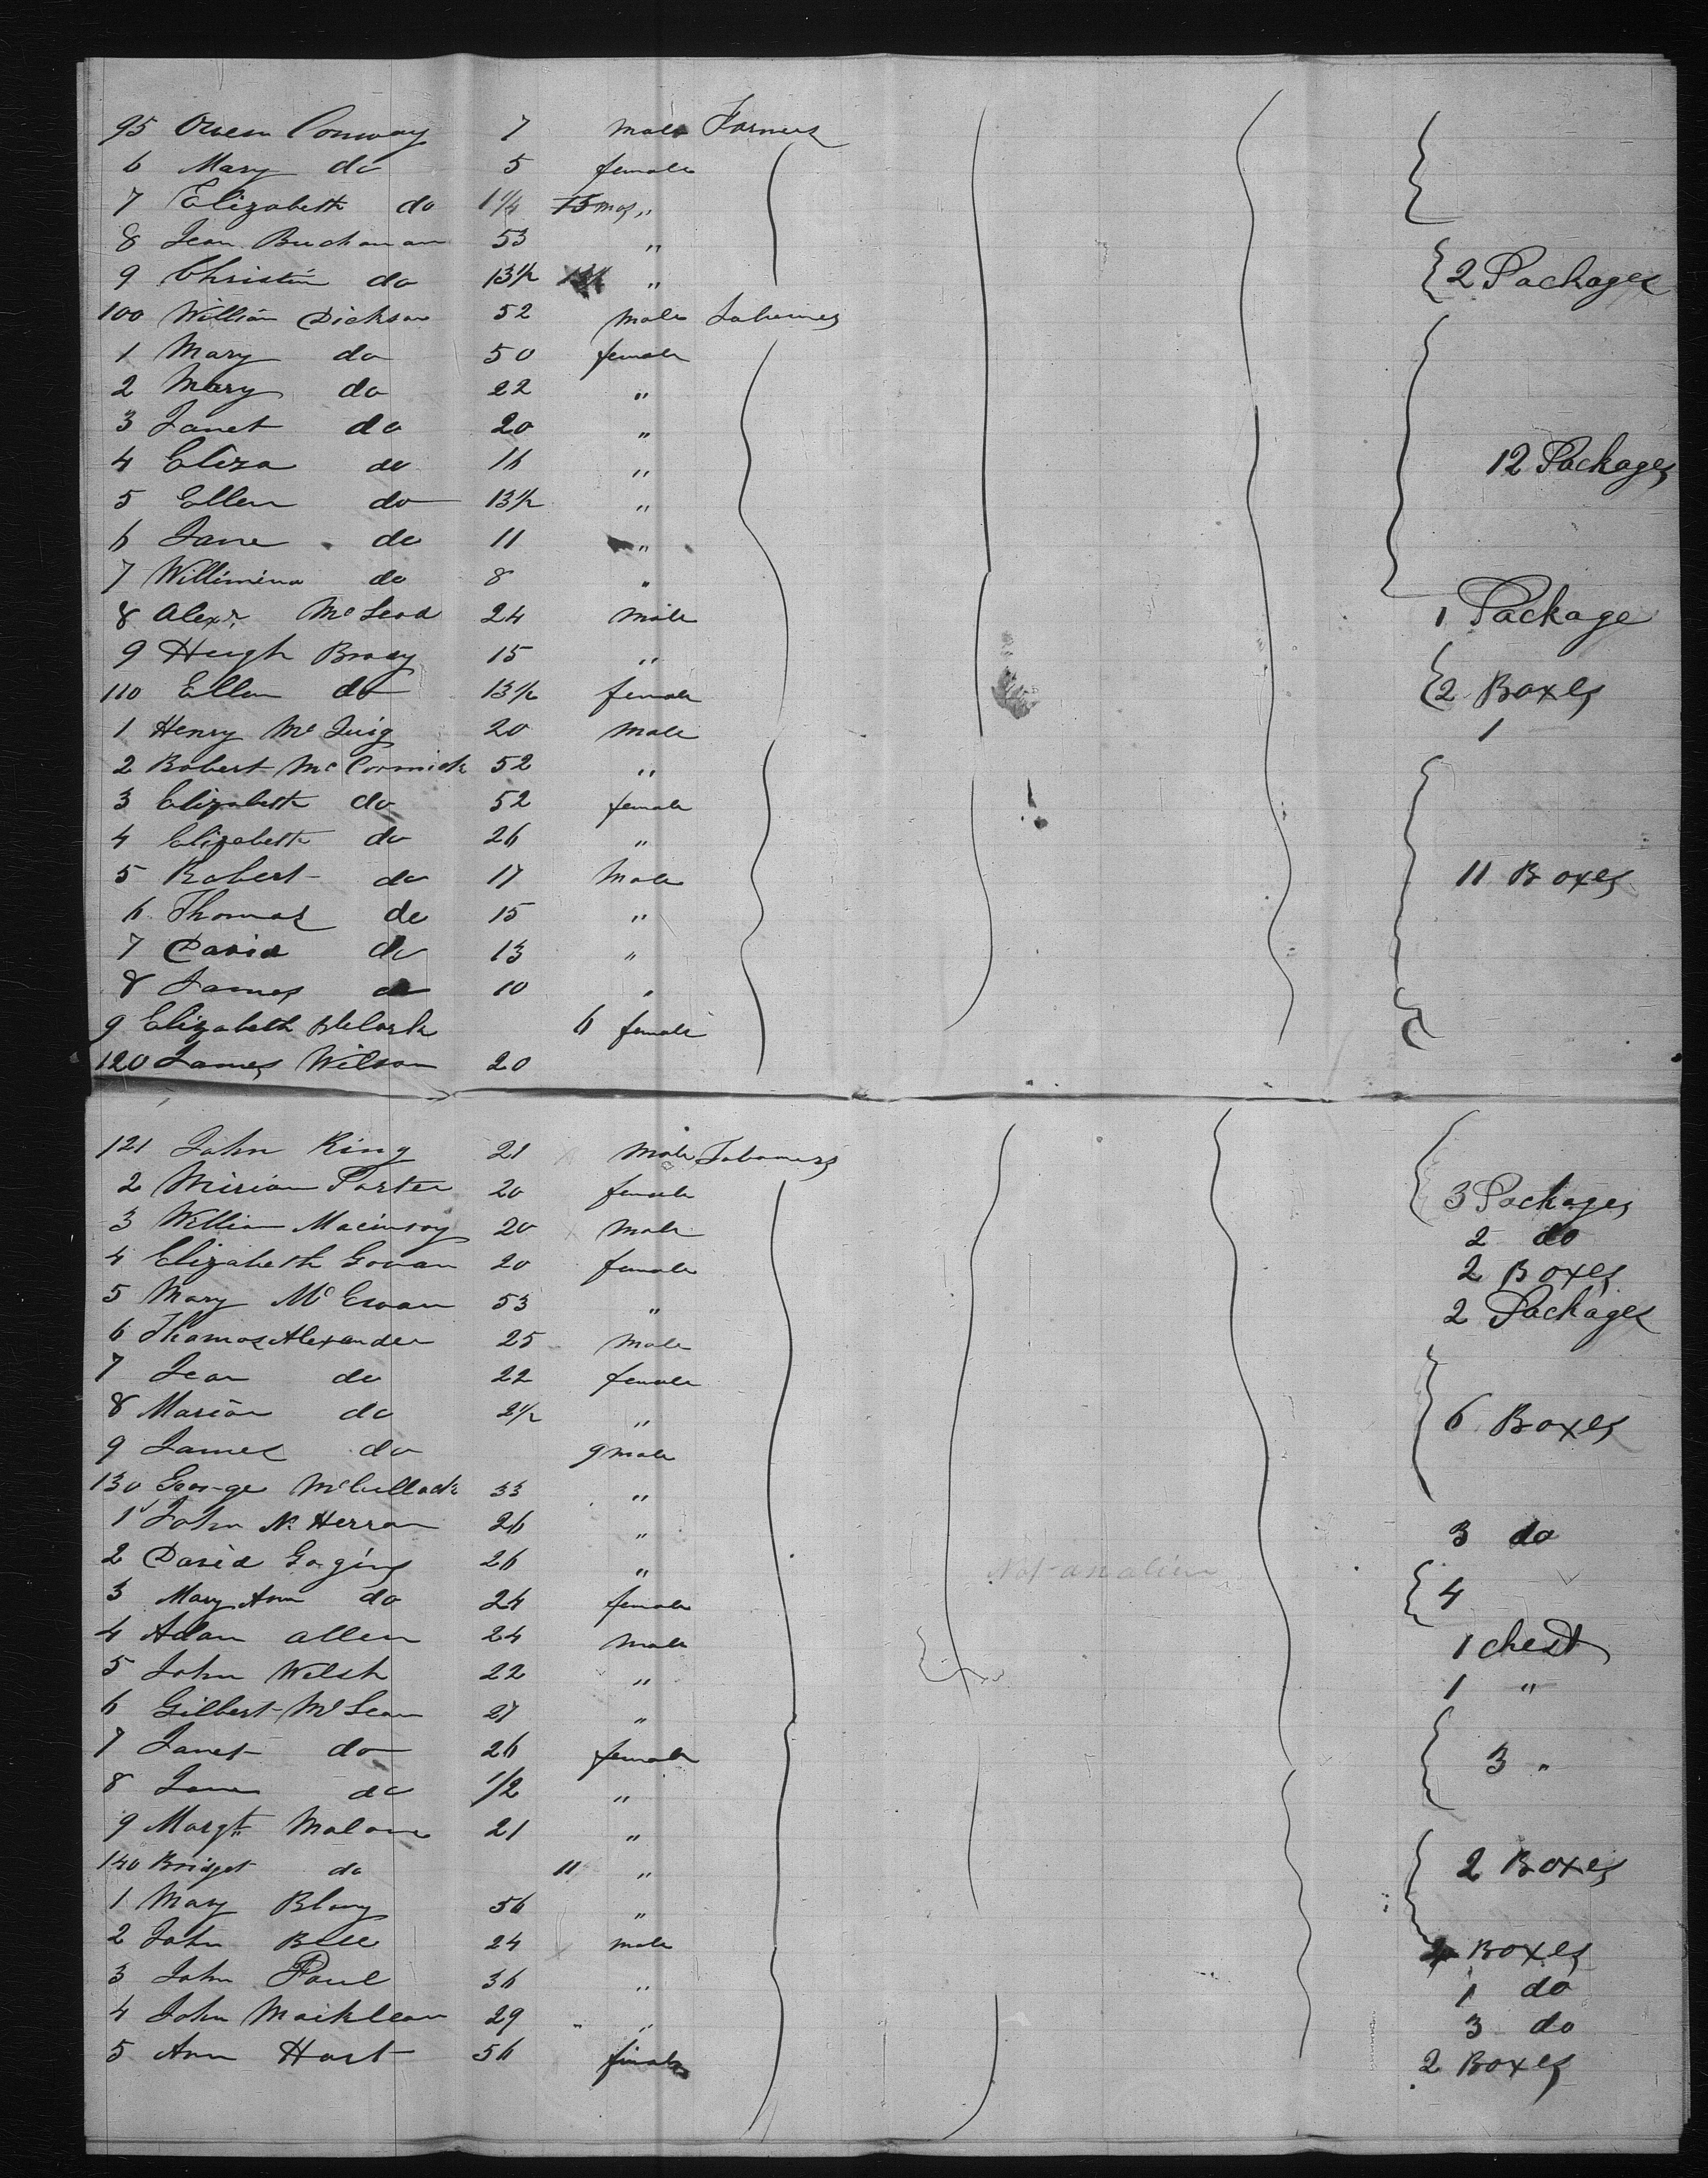 95 Owen Conway 7 male Farmers
6 Mary do 5 female
7 Elizabeth do 1 1/4 15 mos "
8 Jean Buchanan 53 "
9 Christin do 13 1/2 " 2 Packages
100 William Dickson 52 male Labourers
1 Mary do 50 female
2 Mary do 22 "
3 Janet do 20 "
4 Eliza do 16 " 12 Packages
5 Ellen do 13 1/2 "
6 Jane do 11 "
7 Willimina do 8 "
8 Alexr. McLeod 24 male 1 Package
9 Hugh Brady 15 "
110 Ellen do 13 1/2 female 2 Boxes
1 Henry Mc 20 male 1
2 Robert McCormick 52 "
3 Elizabeth do 52 female
4 Elizabeth do 26 "
5 Robert do 17 Male 11 Boxes
6 Thomas do 15 "
7 David do 13 "
8 James do 10 "
9 Elizabeth 6 female
120 James Wilson 20
121 John King 21 male Labourers
2 Miriam Porter 20 female 3 Packages
3 William 20 male 2 do
4 Elizabeth Gowan 20 female 2 Boxes
5 Mary McEwan 53 " 2 Packages
6 Thomas Alexander 25 male
7 Jean do 22 female
8 Marion do 2 1/2 " 6 Boxes
9 James do 9 male
130 George McCullock 33 "
1 John Mc Herron 26 " 3 do
2 David 26 " Not an alien
3 Mary Ann do 24 female 4
4 Adam Allen 24 male 1 chest
5 John Welsh 22 " 1 "
6 Gilbert McLean 27 "
7 Janet do 26 female 3 "
8 Jane do 1/2 "
9 Margt. Malone 21 "
140 Bridget do 11 " 2 Boxes
1 Mary 56 "
2 John Bell 24 male Boxes
3 John Paul 36 " 1 do
4 John Macklean 29 " " 3 do
5 Ann Hart 56 female 2 Boxes